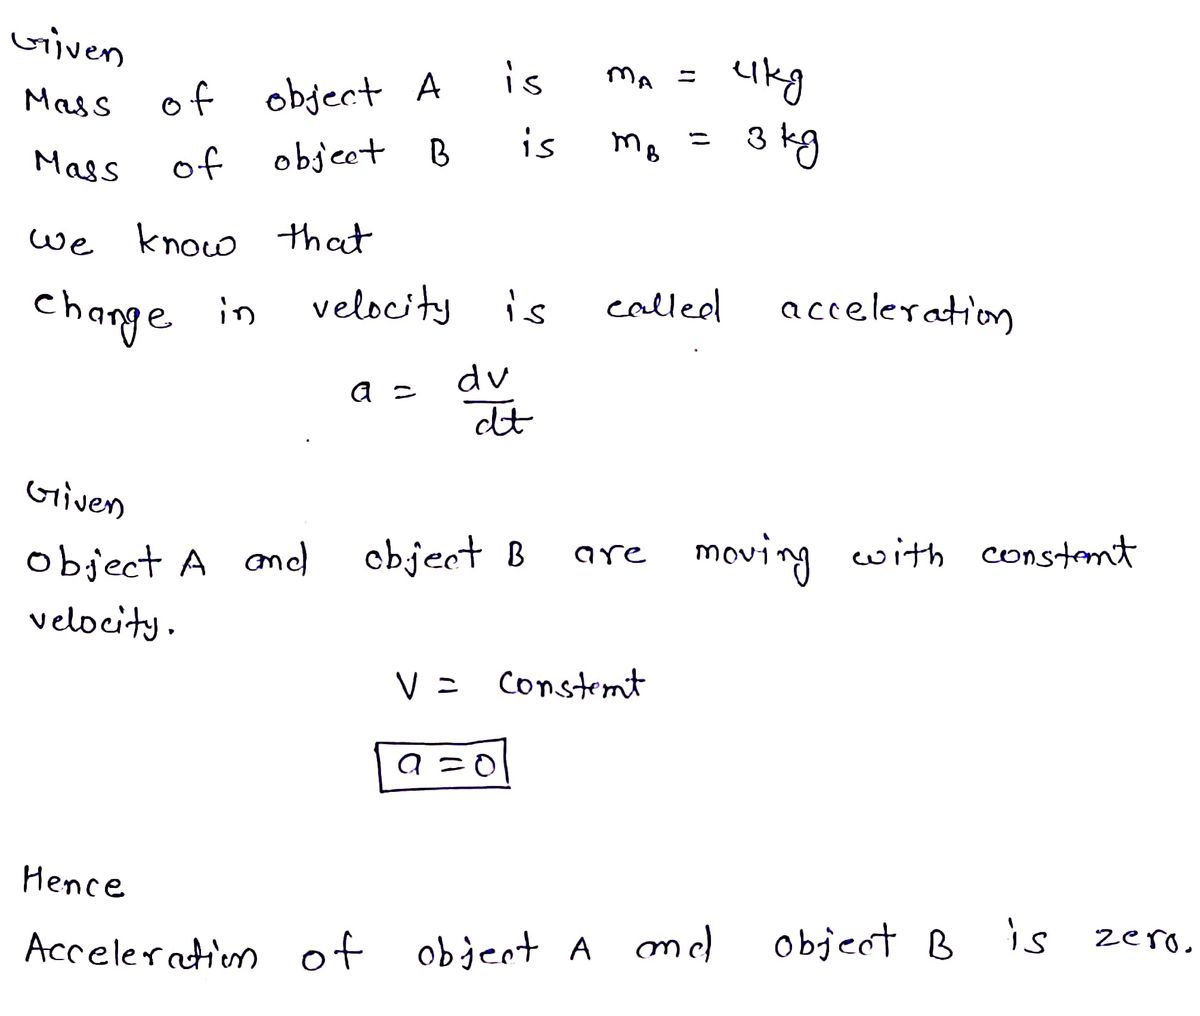 Given
Mass of object A is mA = 4kg
Mass of object B is mB = 3 kg
we know that
change in velocity is called acceleration
a = dv/dt
Given
object A and object B are moving with constant
velocity.
V = constant
a = 0
Hence
Acceleration of object A and object B is zero.